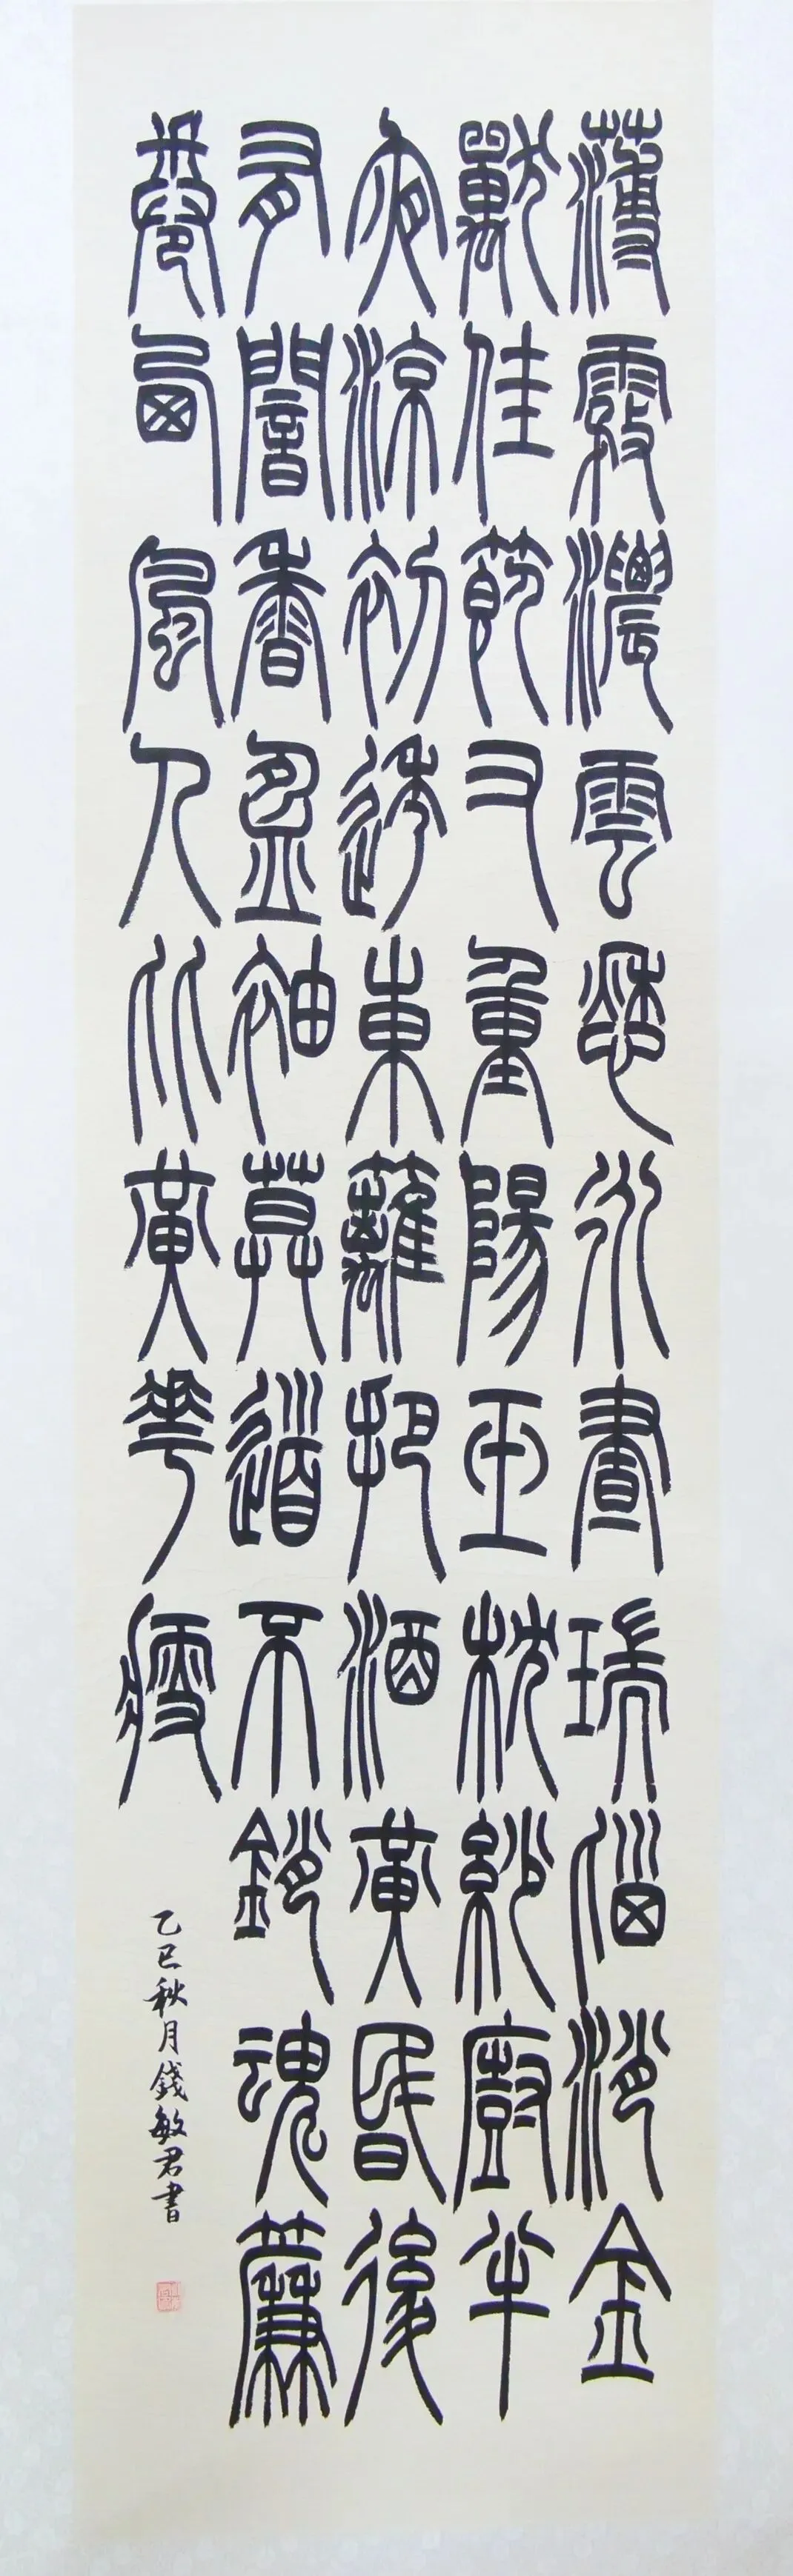 薄霧濃雲愁永晝瑞腦消金
獸佳節又重陽玉枕紗廚半
夜涼初透東籬把酒黃昏後
有闇香盈袖莫道不銷魂簾
捲西風人比黃花瘦
乙巳秋月錢敏君書